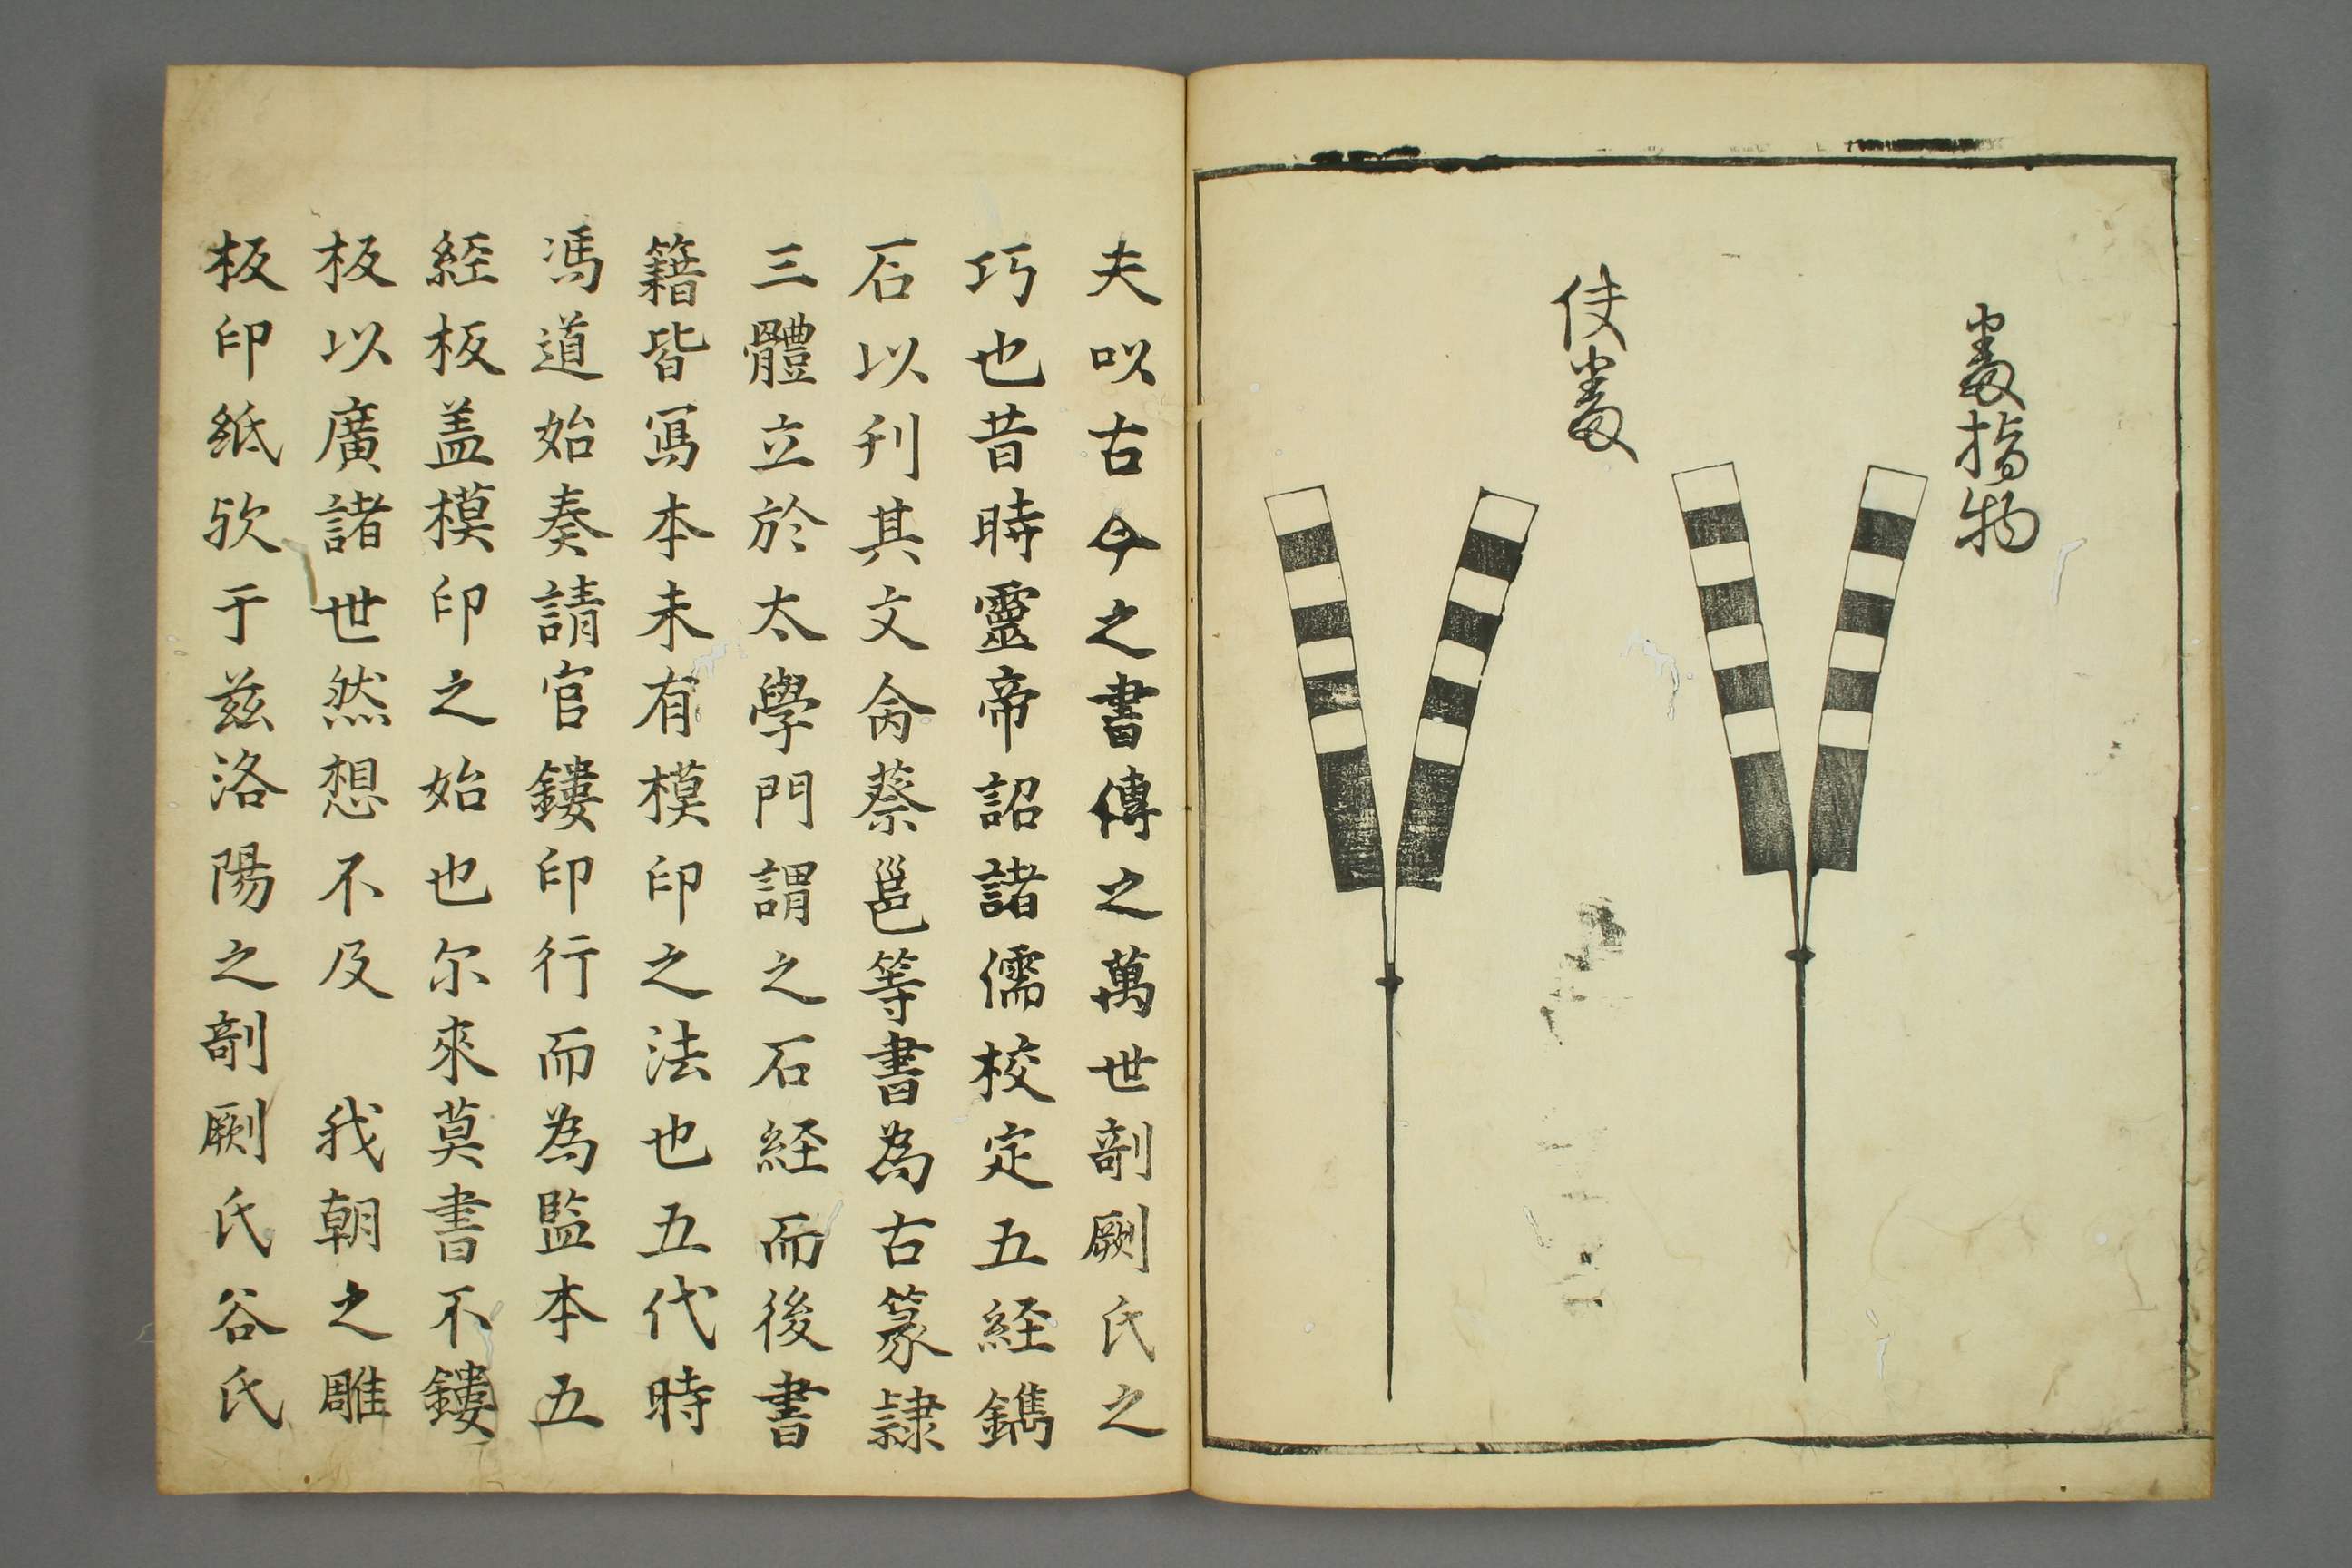 番指物
使番
夫以古今之書傳之萬世剞劂氏之
巧也昔時靈帝詔諸儒校定五経鐫
石以刊其文命蔡邕等書為古篆隷
三體立於太學門謂之石経而後書
籍皆寫本未有模印之法也五代時
馮道始奏請官鏤印行而為監本五
經板盖模印之始也尔來莫書不鏤
板以廣諸世然想不及　我朝之雕
板印紙欤于兹洛陽之剞劂氏谷氏